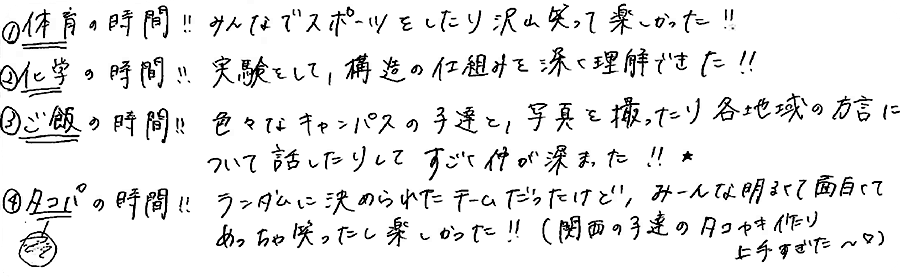 ①体育の時間!! みんなでスポーツをしたり沢山笑って楽しかった!!
②化学の時間!! 実験をして, 構造の仕組みを深く理解できた!!
③ご飯の時間!! 色々なキャンパスの子達と, 写真を撮ったり各地域の方言に
ついて話したりしてすごく仲が深まった!! ★
④タコパの時間!! ランダムに決められたチームだったけど, みーんな明るくて面白くて
めっちゃ笑ったし楽しかった!! (関西の子達のタコヤキ作たり
上手すぎた～♡)